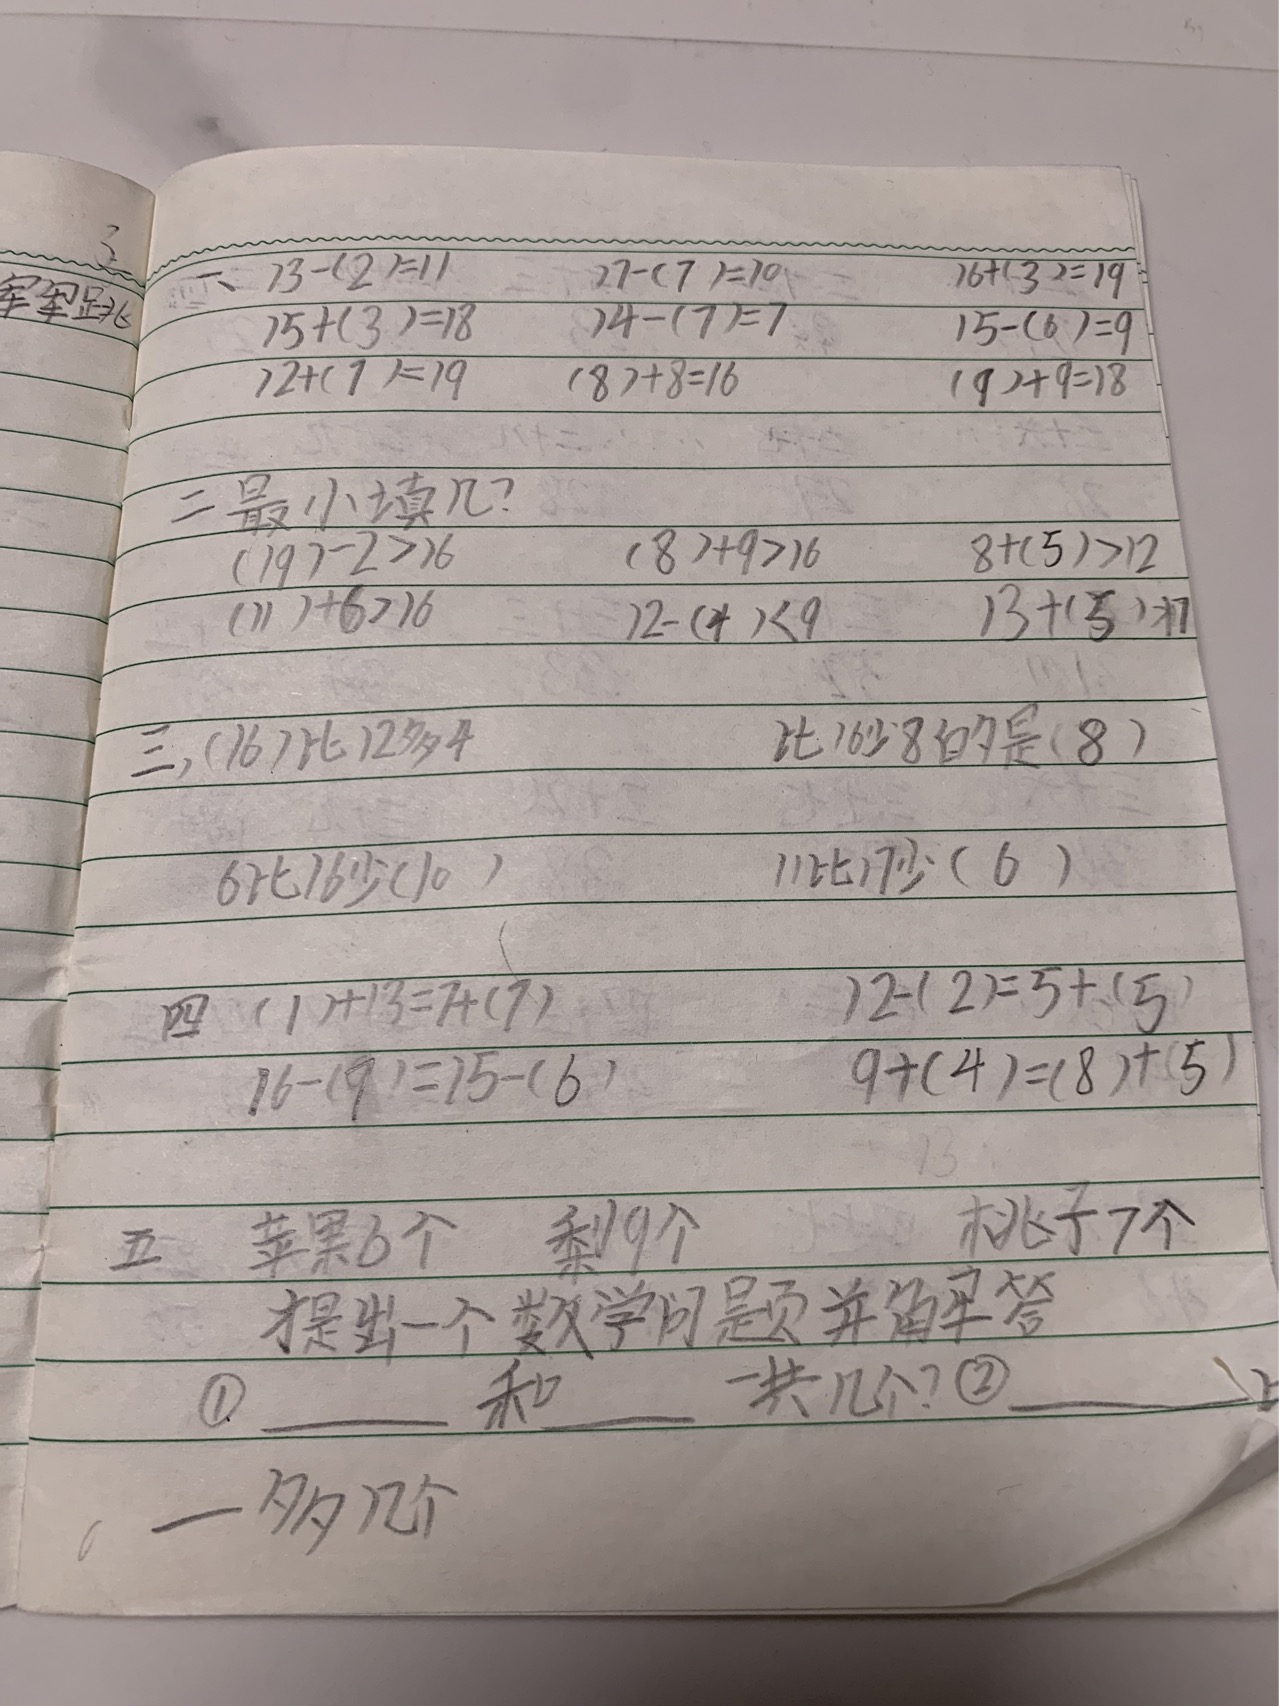 3
军军足兆
一、 13-(2)=11 17-(7)=10 16+(3)=19
15+(3)=18 14-(7)=7 15-(6)=9
12+(7)=19 (8)+8=16 (9)+9=18
二 最小填几?
(19)-2>16 (8)+9>16 8+(5)>12
(11)+6>16 12-(4)<9 13+(5)>17
三,(16)比12多4 比16少8的是(8)
6比16少(10) 11比17少(6)
四 (1)+13=7+(7) 12-(2)=5+(5)
16-(9)=15-(6) 9+(4)=(8)+(5)
五 苹果6个 梨19个 桃子7个
提出一个数学问题并解答
① ____ 和____ 一共几个?② ____比
一多几个